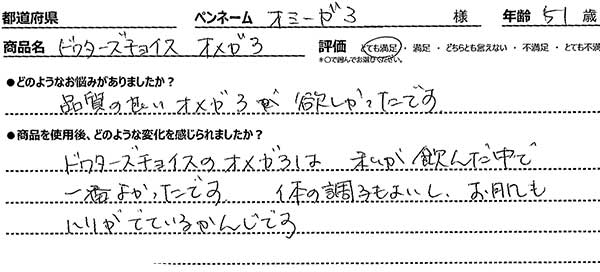 都道府県 ペンネーム オミーガ3 様 年齢 51 歳
商品名 ドクターズチョイス オメガ3 評価 とても満足・満足・どちらとも言えない・不満足・とても不満
*○で囲んでお選びください。
●どのようなお悩みがありましたか?
品質の良い オメガ3が 欲しかったです
●商品を使用後、どのような変化を感じられましたか?
ドクターズチョイスのオメガ3は 私が 飲んだ中で
一番よかったです 体の調子もよいし、お肌も
ハリがでているかんじです